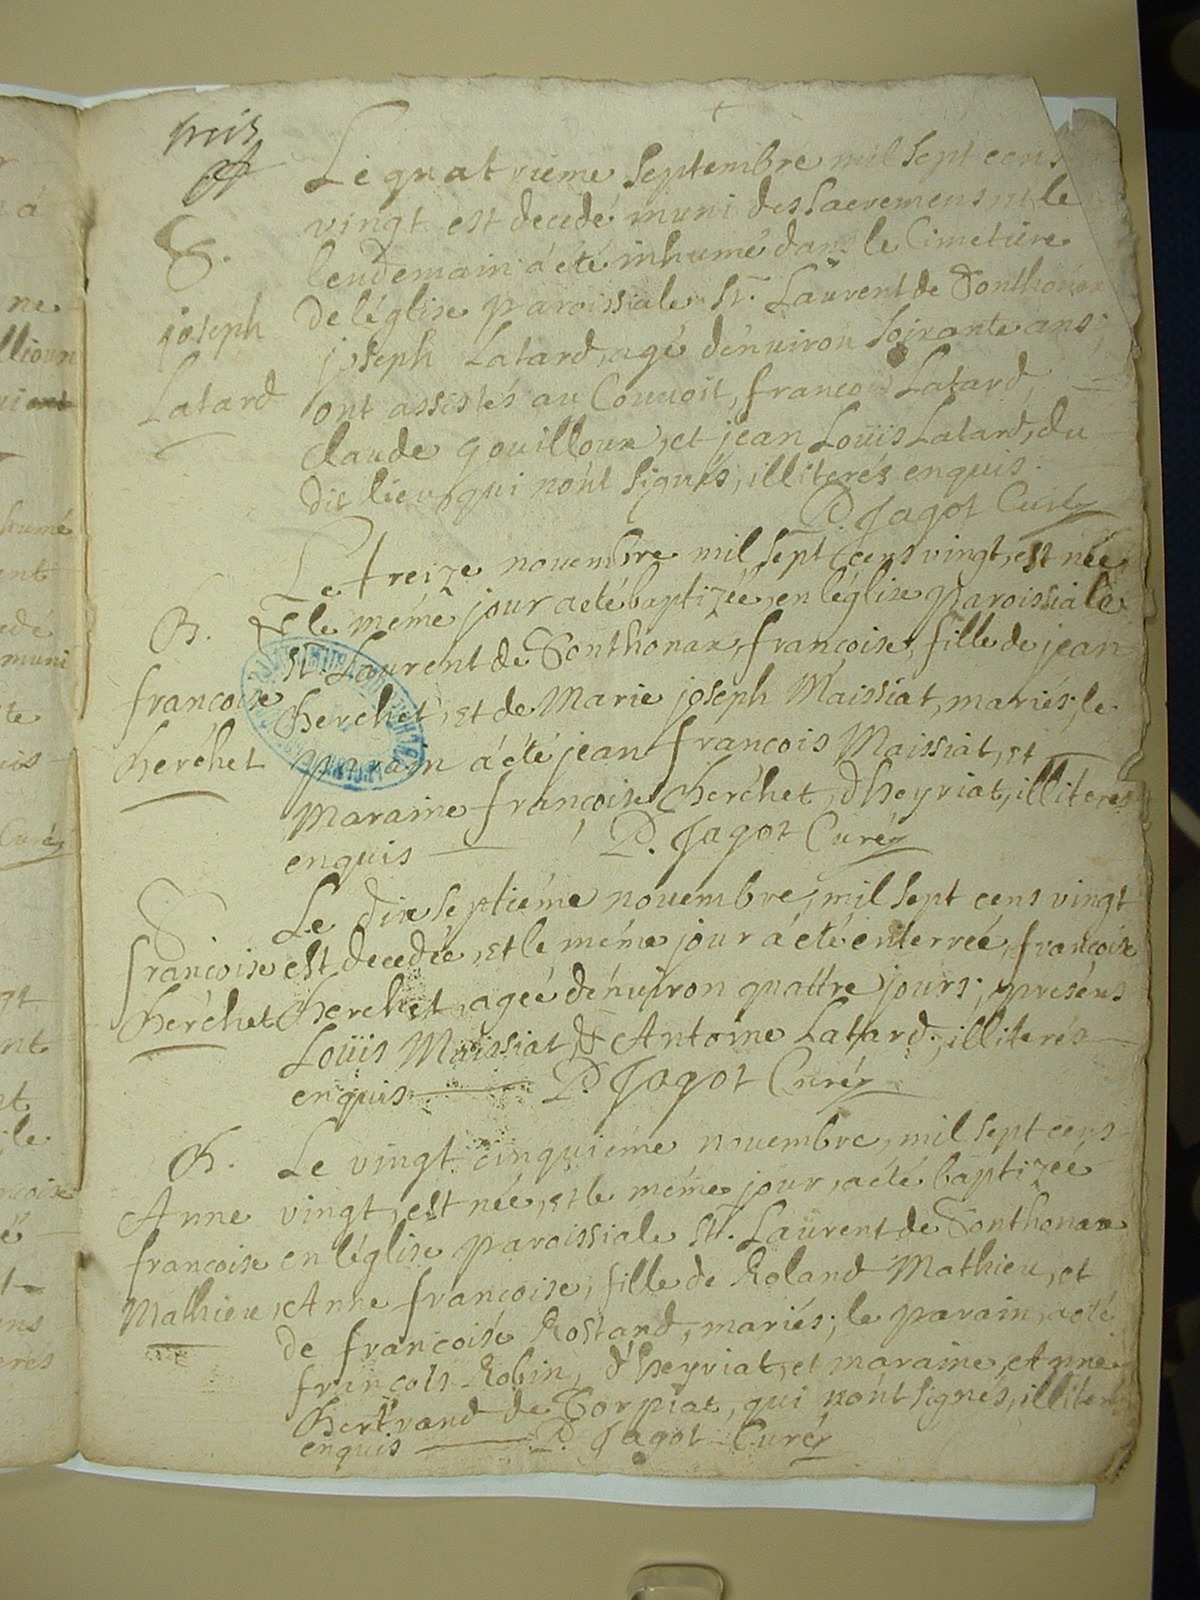 trois
Le quatrieme septembre mil sept cens
vingt est decedé muni des sacremens, et le
lendemain a été inhumé dans le Cimetiere
S.
joseph
Latard
De l'église paroissiale St. Laurent de Sonthonax
joseph Latard, agé dénuiron soixante ans;
ont assistés au Conuoit, françois Latard,
Claude gouilloux, et jean Loüis Latard, du
dit lieu, qui n'ont signés, illiterés enquis.
P. Jagot Curé
Le treize novembre mil sept cens vingt, est née
B.
francoise
Cherchet
& le méme jour a été baptizée, en léglise paroissiale
St. Laurent de Sonthonax, francoise, fille de jean
Cherchet, et de Marie joseph Maissiat, mariés; le
parain a été jean françois Maissiat, et
Maraine françoise Cherchet, d'heyriat, illiteres
enquis P. Jagot Curé
S
francoise
Cherchet
Le dix septiéme nouembre, mil sept cens vingt
est decedée, et le méme jour a été enterreé, francoise
Cherchet, ageé dénuiron quattre jours; presens
Loüis Maissiat, & Antoine Latard, illiterés
enquis P. Jagot Curé
B.
Anne
francoise
Mathieu
Le vingt cinquiéme nouembre, mil sept cens
vingt, est née, et le méme jour, a été baptizeé
en léglise paroissiale St. Laurent de Sonthonax
Anne francoise, fille de Roland Mathieu, et
de francoise Rostand, mariés; le parain, a été
françois Robin, d'heyriat, et maraine, Anne
Bertrand de Corpiat, qui n'ont signés, illiterés
enquis P. Jagot Curé